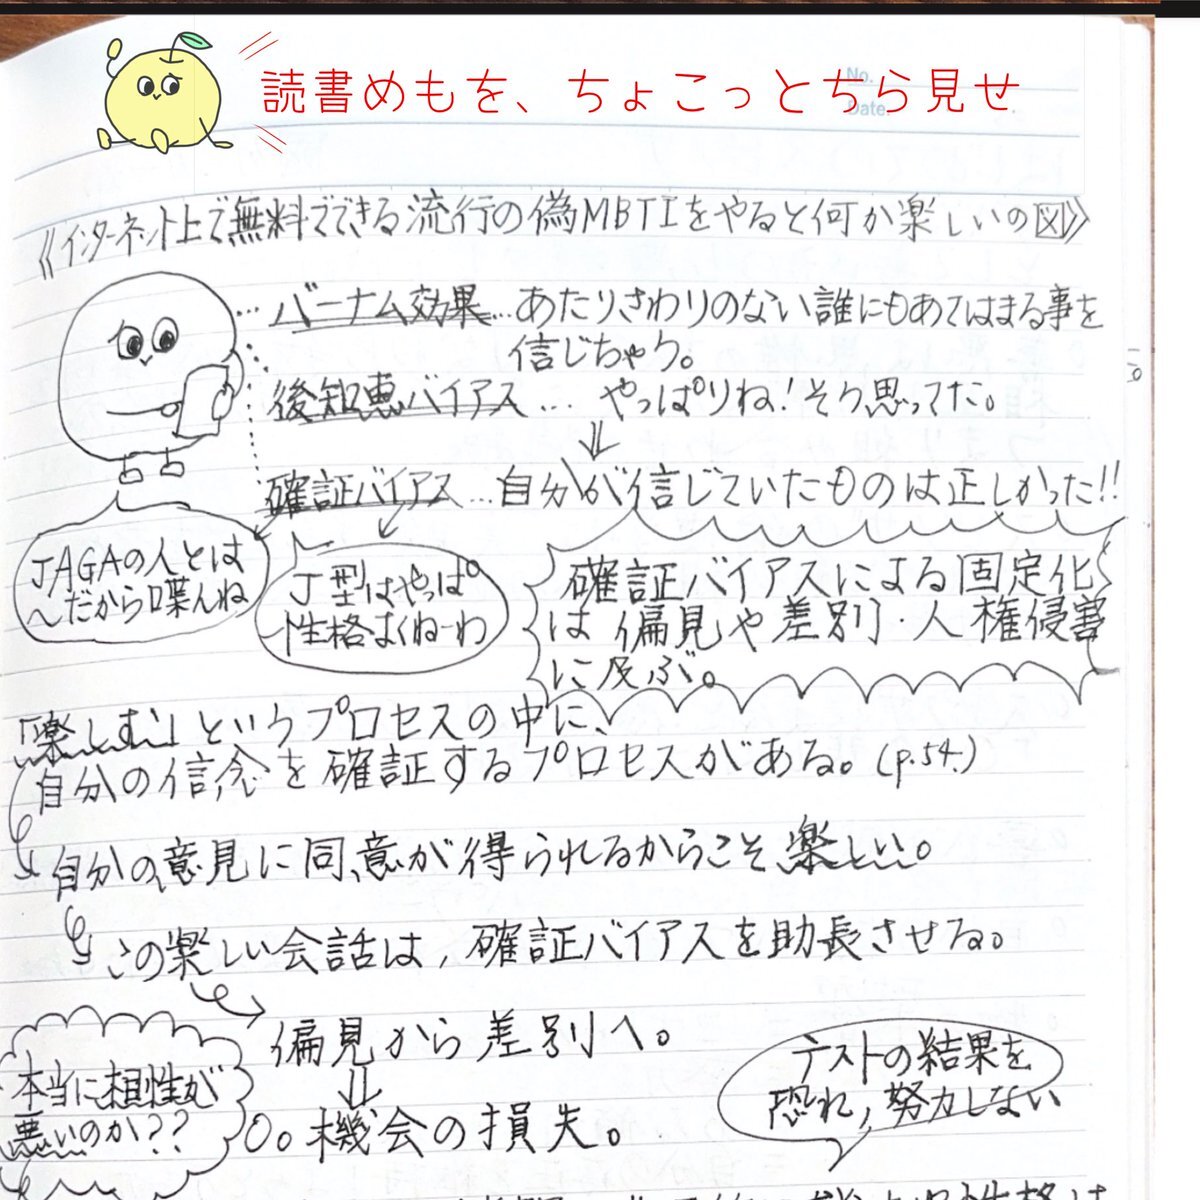 読書めもを、ちょこっとちら見せ
No.
Date
《インターネット上で無料でできる流行の偽MBTIをやると何か楽しいの図》
…バーナム効果…あたりさわりのない誰にもあてはまる事を
信じちゃう。
後知恵バイアス… やっぱりね!そう思ってた。
⇓
確証バイアス…自分が信じていたものは正しかった!!
JAGAの人とは
〜だから喋んね
J型はやっぱ
性格はくねーわ
確証バイアスによる固定化
は偏見や差別・人権侵害
に及ぶ。
「楽しむ」というプロセスの中に、
自分の信念を確証するプロセスがある。(p.54.)
自分の意見に同意が得られるからこそ楽しい。
この楽しい会話は,確証バイアスを助長させる。
偏見から差別へ。
⇓
本当に相性が
悪いのか??
0。機会の損失。
テストの結果を
恐れ,努力しない